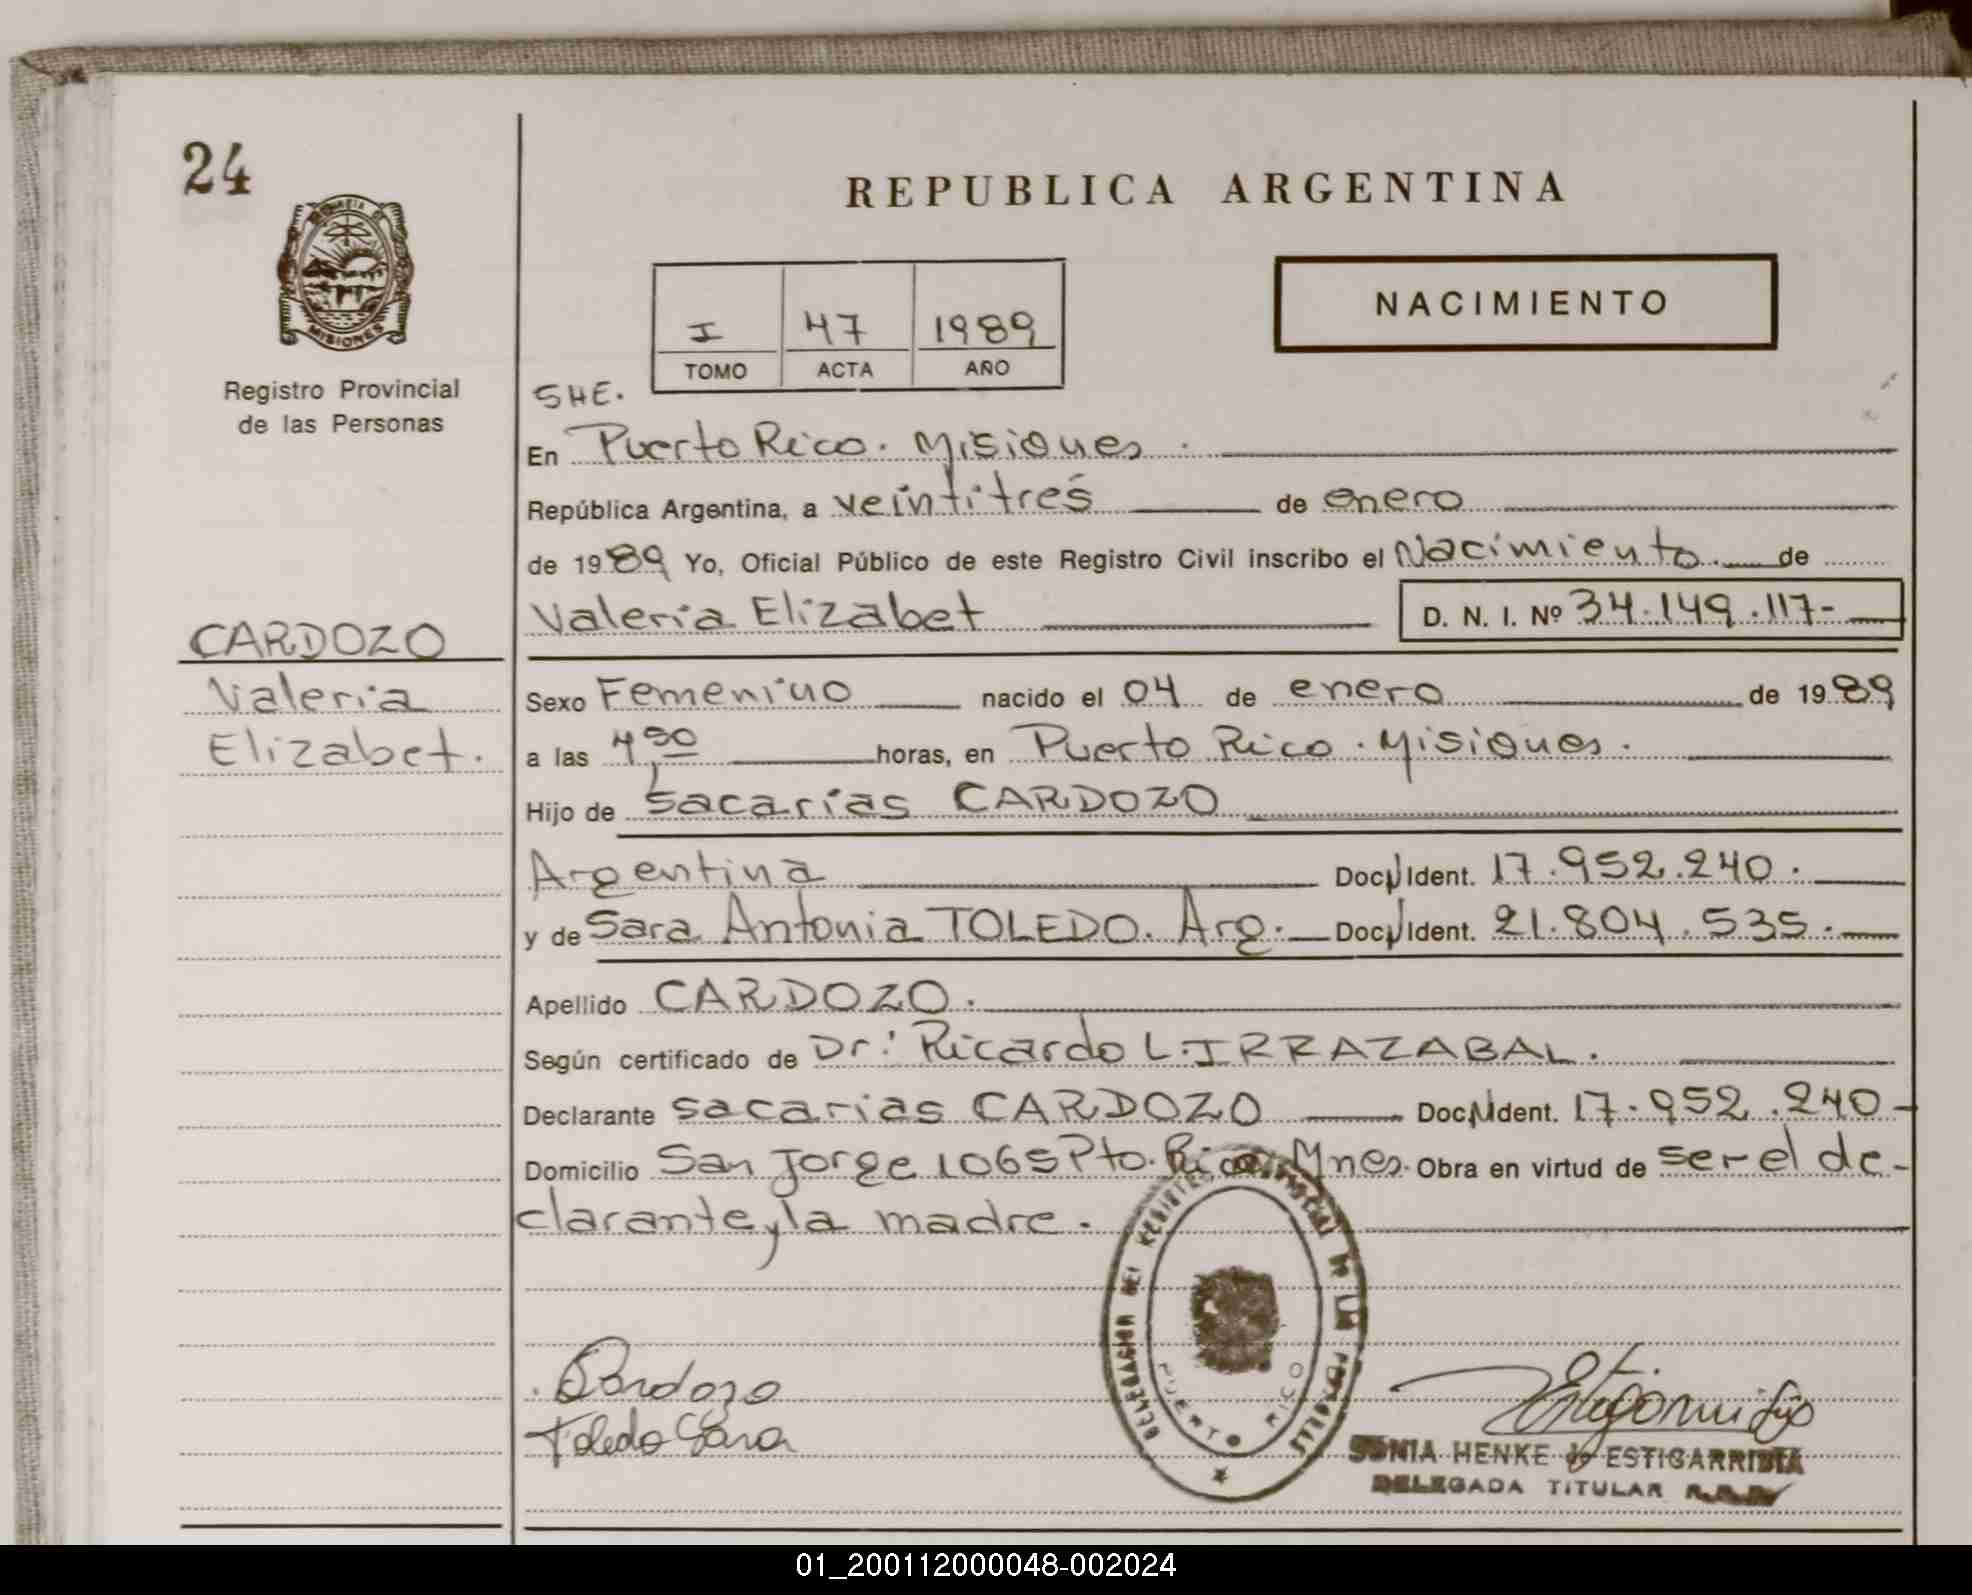 24
REPUBLICA ARGENTINA
NACIMIENTO
MISIONES
I 47 1989
TOMO ACTA AÑO
Registro Provincial
de las Personas
SHE.
En Puerto Rico. Misiones.
República Argentina, a veintitrés de enero
de 1989 Yo, Oficial Público de este Registro Civil inscribo el Nacimiento de
Valeria Elizabet D. N. I. Nº 34.149.117-
CARDOZO
Valeria
Elizabet.
Sexo Femenino nacido el 04 de enero de 1989
a las 4,30 horas, en Puerto Rico. Misiones.
Hijo de Sacarias CARDOZO
Argentina Doc. Ident. 17.952.240.
y de Sara Antonia TOLEDO. Arg. Doc. Ident. 21.804.535.
Apellido CARDOZO.
Según certificado de Dr: Ricardo L. IRRAZABAL.
Declarante Sacarias CARDOZO Doc. Ident. 17.952.240-
Domicilio San Jorge 1065 Pto. Rico. Mnes. Obra en virtud de ser el de-
clarante y la madre.
DELEGACION DEL REGISTRO PROVINCIAL DE LAS PERSONAS
PUERTO RICO
Cardozo
Toledo Sara
SONIA HENKE de ESTIGARRIBIA
DELEGADA TITULAR
01_200112000048-002024